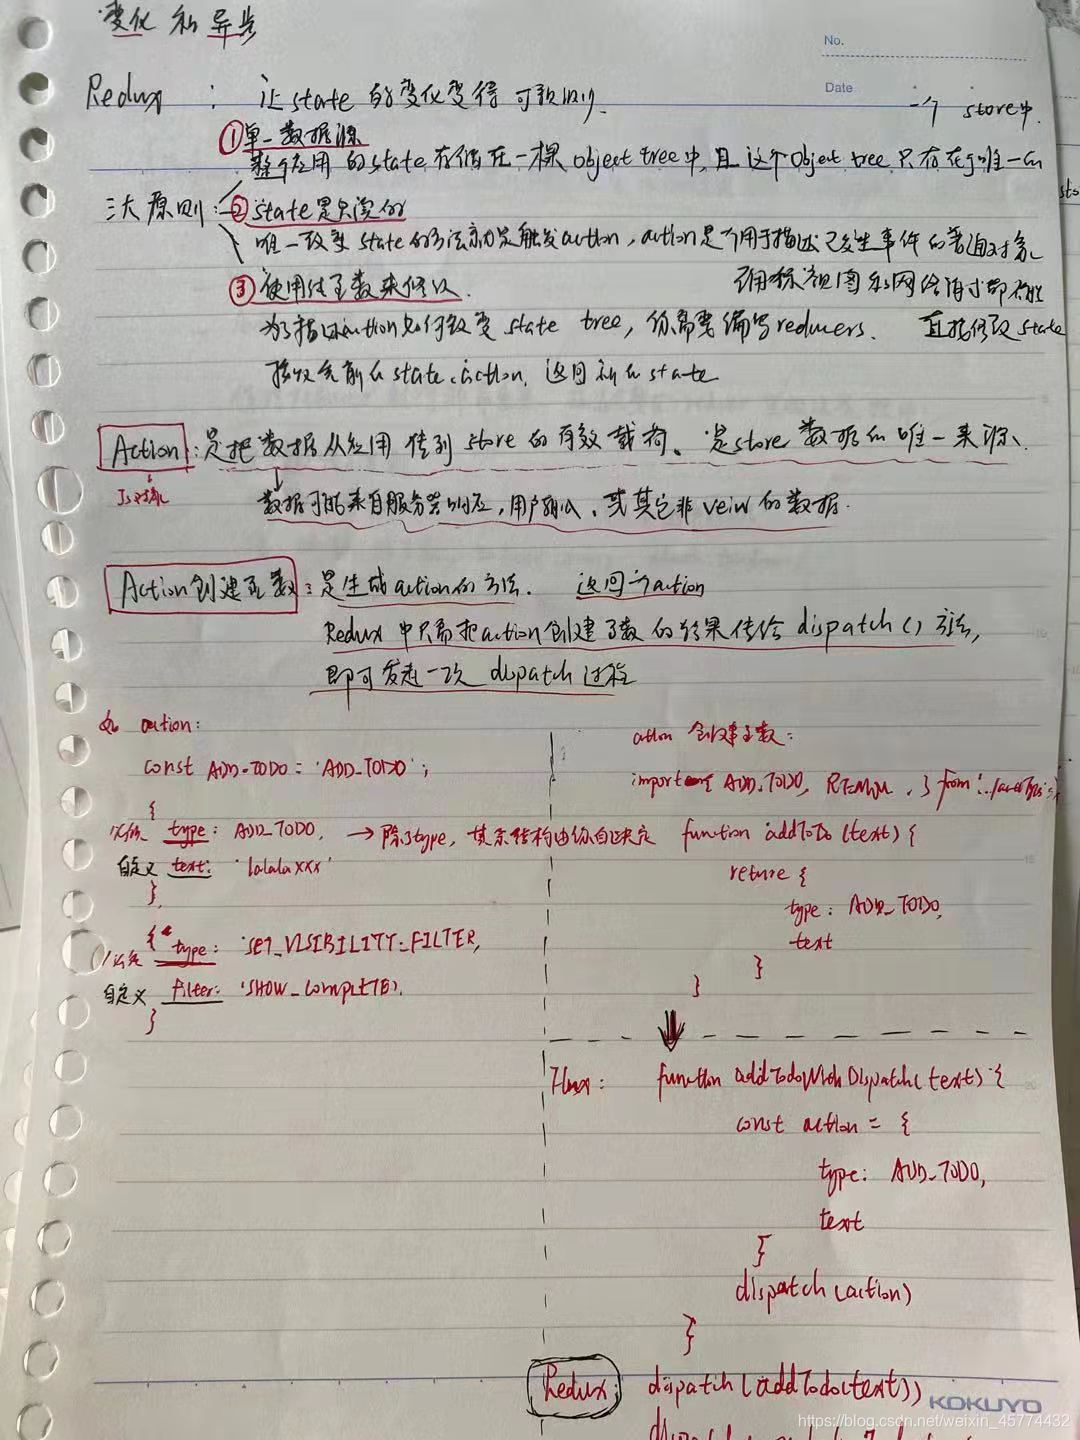 变化和异步
No.
Date
Redux : 让state的变化变得可预测.
①单一数据源
整个应用的state存储在一棵object tree中,且这个object tree只存在于唯一的一个store中.
三大原则: ②state是只读的
唯一改变state的方法就是触发action,action是一个用于描述已发生事件的普通对象
确保视图和网络请求都不能直接修改state
③使用纯函数来修改.
为了指明action如何改变state tree,你需要编写reducers.
接收先前的state、action,返回新的state
Action:是把数据从应用传到store的有效载荷、是store数据的唯一来源、
Js对象
数据可能来自服务器响应,用户输入、或其它非veiw的数据.
Action创建函数:是生成action的方法. 返回一个action
Redux中只需把action创建函数的结果传给dispatch()方法,
即可发起一次dispatch过程
如 action:
const ADD_TODO = 'ADD_TODO';
{
type: ADD_TODO, → 除了type,其余结构由你自己决定
自定义 text: 'lalalaxxx'
},
{ type: 'SET_VISIBILITY_FILTER,
自定义 filter: 'SHOW_COMPLETED.
}
ation 创建函数:
import { ADD_TODO, } from
function addToDo (text) {
return {
type: ADD_TODO,
text
}
}
Flux: function addTodoWithDispatch(text) {
const action = {
type: ADD_TODO,
text
}
dispatch(action)
}
Redux: dispatch(addTodo(text))
KOKUYO
https://blog.csdn.net/weixin_45774432